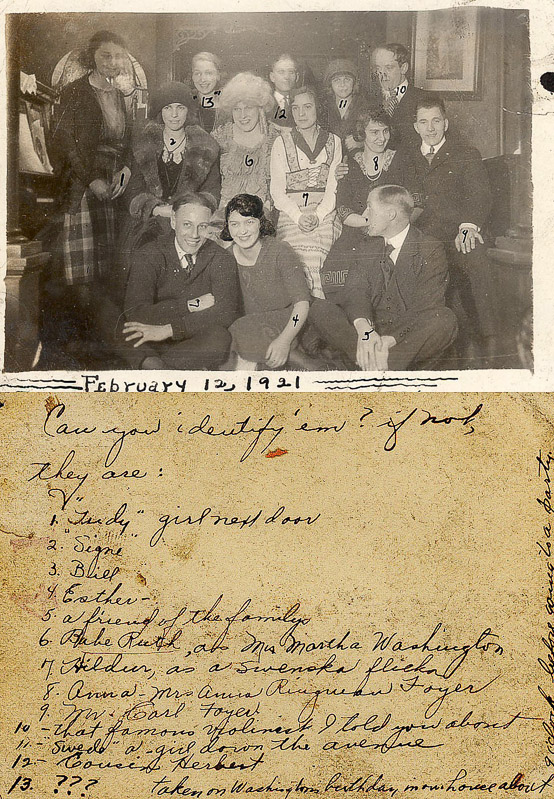 "13"
12
11
10
2
6
8
1
7
9
3
4
5
February 12, 1921
Can you identify 'em? if not,
they are:
1. girl next door
2. "Signe"
3. Bill
4. Esther-
5 a friend of the familys
6. Babe Ruth, as Mrs Martha Washington
7 Hildur, as a Swenska flicka
8. Anna - Mrs Anna Foyer
9. Mr. Carl Foyer.
10 - that famous violinest I told you about
11 - "Swede" a girl down the avenue
12 - Cousin Herbert
13. ??? taken on Washingtons birthday house about
9 o'clock before going to a party